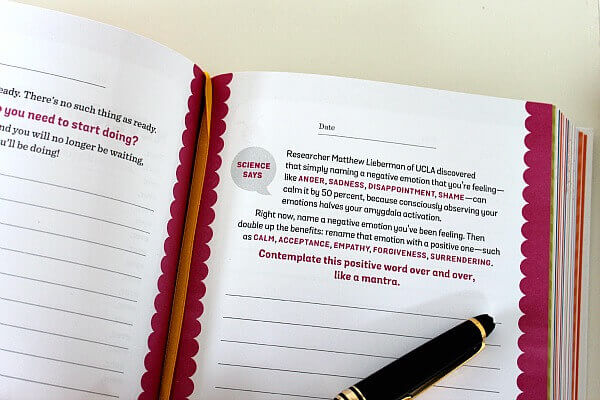 eady. There's no such thing as ready.
you need to start doing?
nd you will no longer be waiting,
u'll be doing!
Date
SCIENCE
SAYS
Researcher Matthew Lieberman of UCLA discovered
that simply naming a negative emotion that you're feeling—
like ANGER, SADNESS, DISAPPOINTMENT, SHAME—can
calm it by 50 percent, because consciously observing your
emotions halves your amygdala activation.
Right now, name a negative emotion you've been feeling. Then
double up the benefits: rename that emotion with a positive one—such
as CALM, ACCEPTANCE, EMPATHY, FORGIVENESS, SURRENDERING.
Contemplate this positive word over and over,
like a mantra.